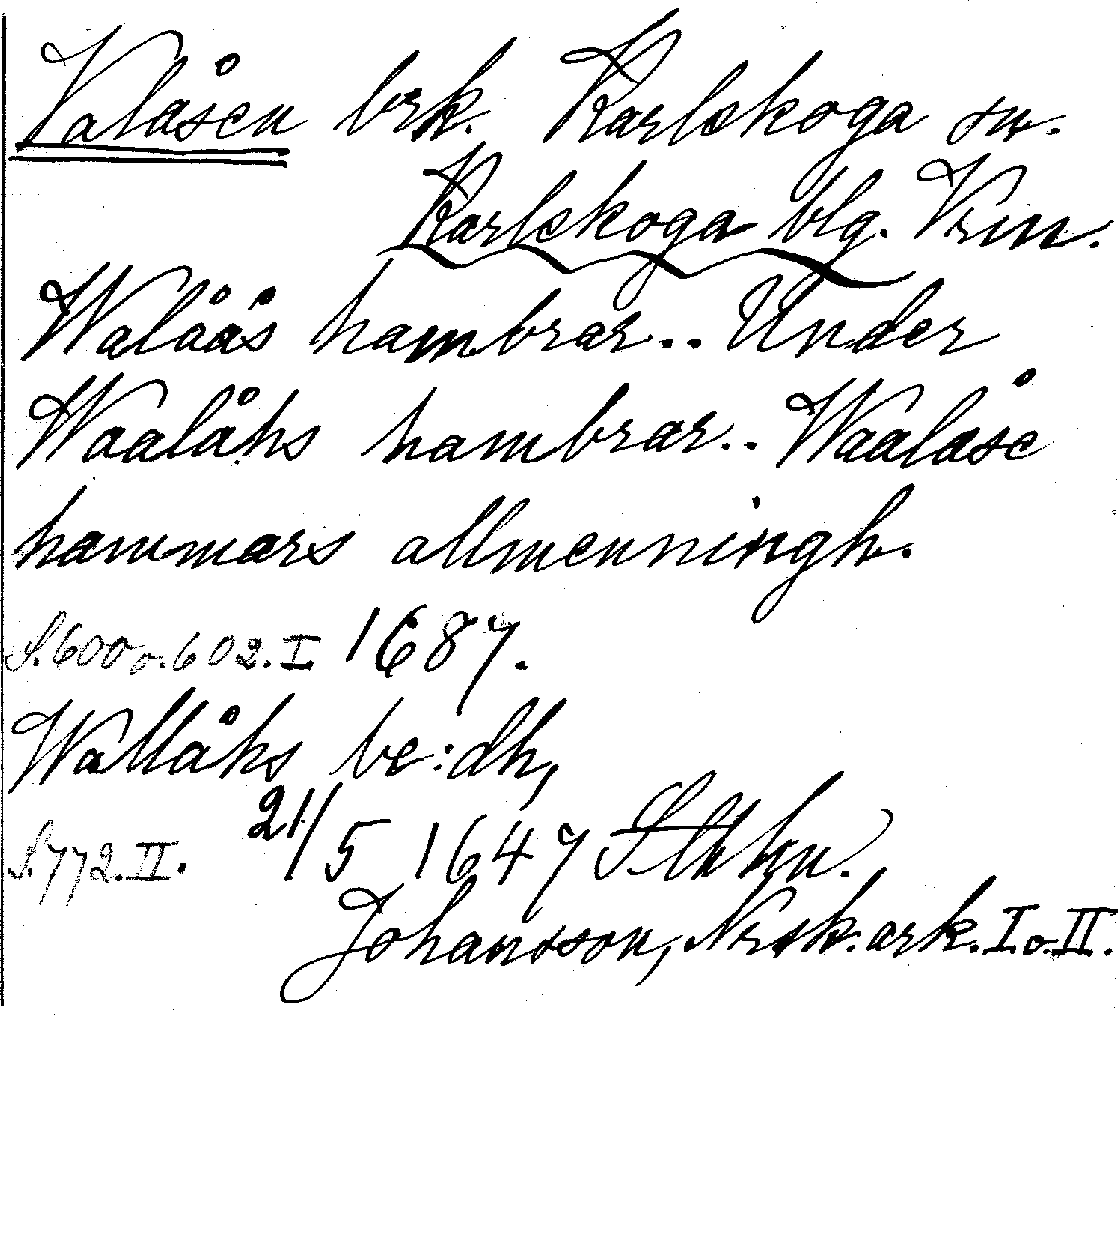 Valåsen brk. Karlskoga sn.
Karlskoga blg. Vrm.
Walåås hambrar.. Under
Waalåhs hambrar.. Waalåse
hammars allmenningh.
S. 600 o. 602. I 1687.
Wallåhs be:dh,
S. 772. II. 21/5 1647 Sthm.
Johansson, Nrsk. ark. I o. II.